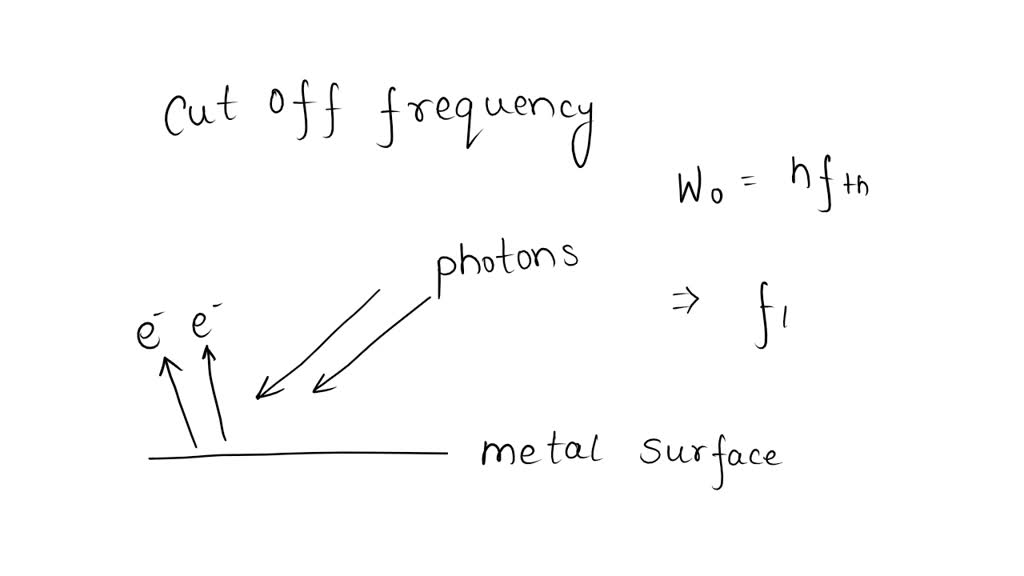 Cut off frequency
W₀ = hfₜₕ
photons
⇒ f₁
e⁻ e⁻
metal surface